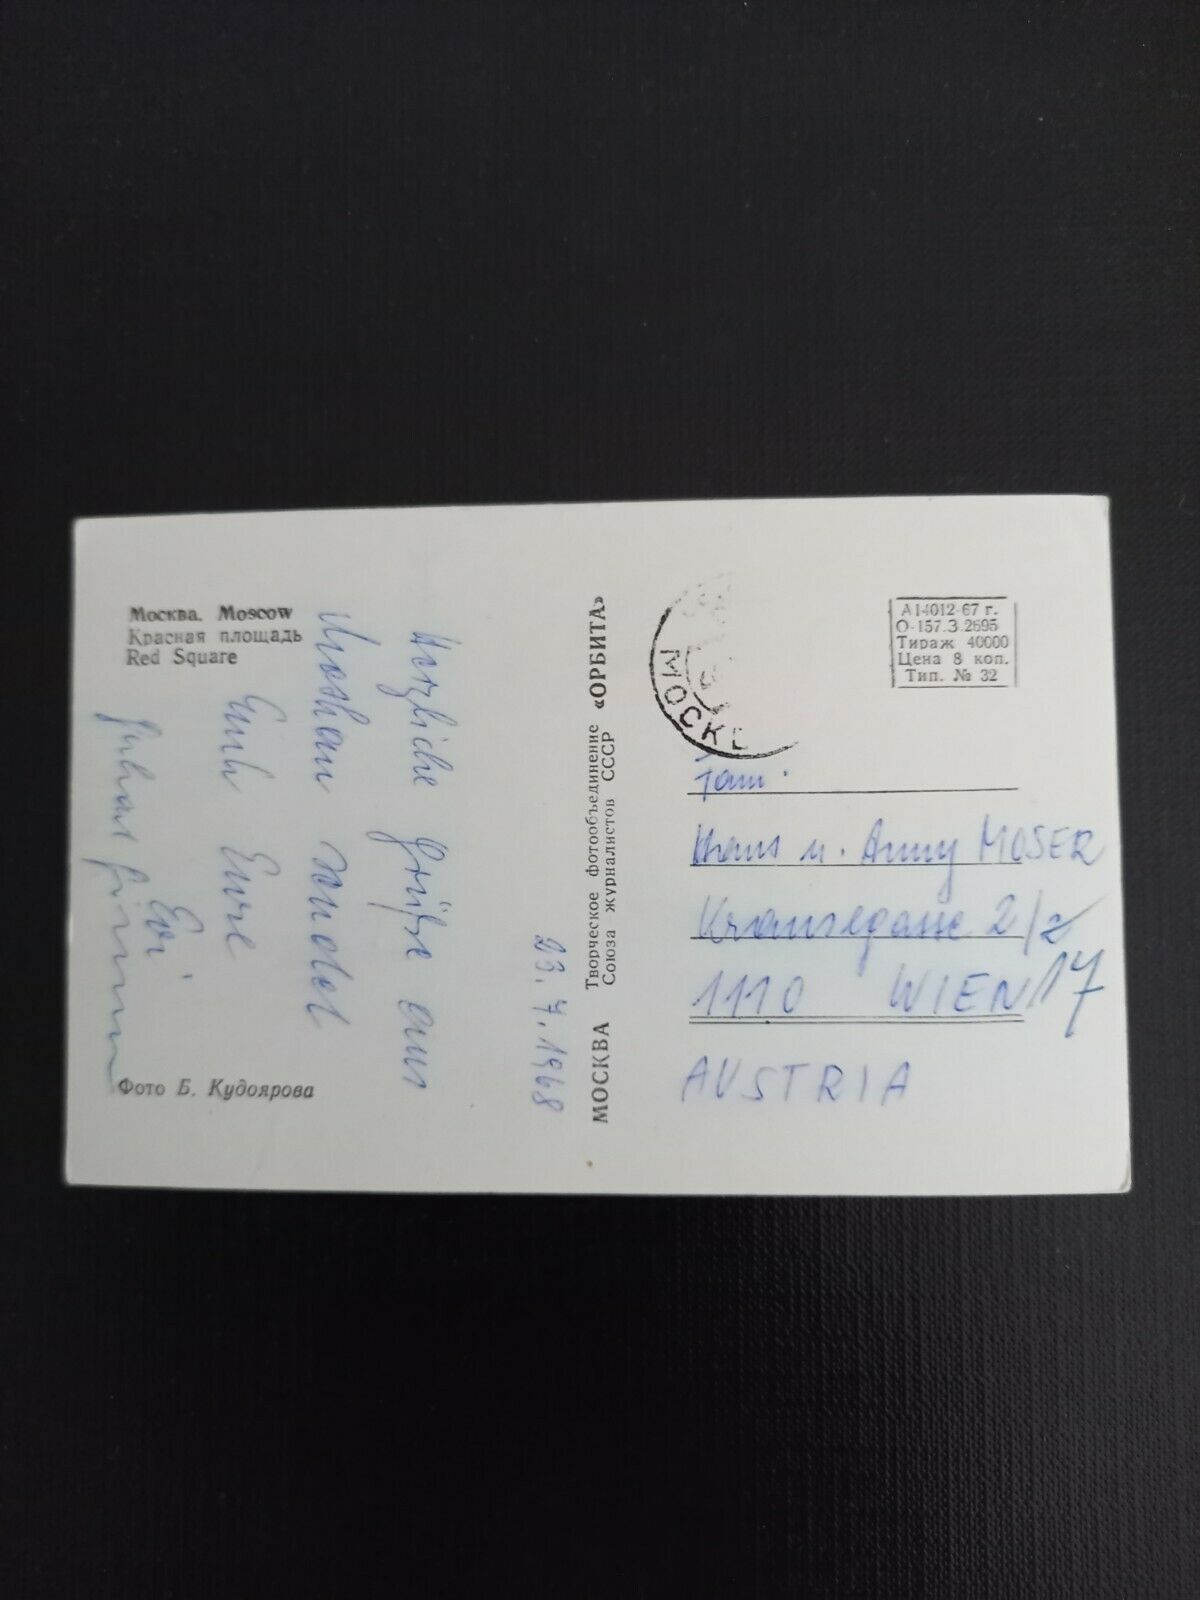 Москва. Moscow
Красная площадь
Red Square
23.7.1968
Herzliche Grüße aus
Moskau sendet
Euch Eure
Evi
Фото Б. Кудоярова
МОСКВА Творческое фотообъединение «ОРБИТА»
Союза журналистов СССР
МОСКВ
А14012-67 г.
О-157.З.2695
Тираж 40000
Цена 8 коп.
Тип. № 32
Fam.
Hans u. Anny MOSER
2/2
1110 WIEN 17
AUSTRIA